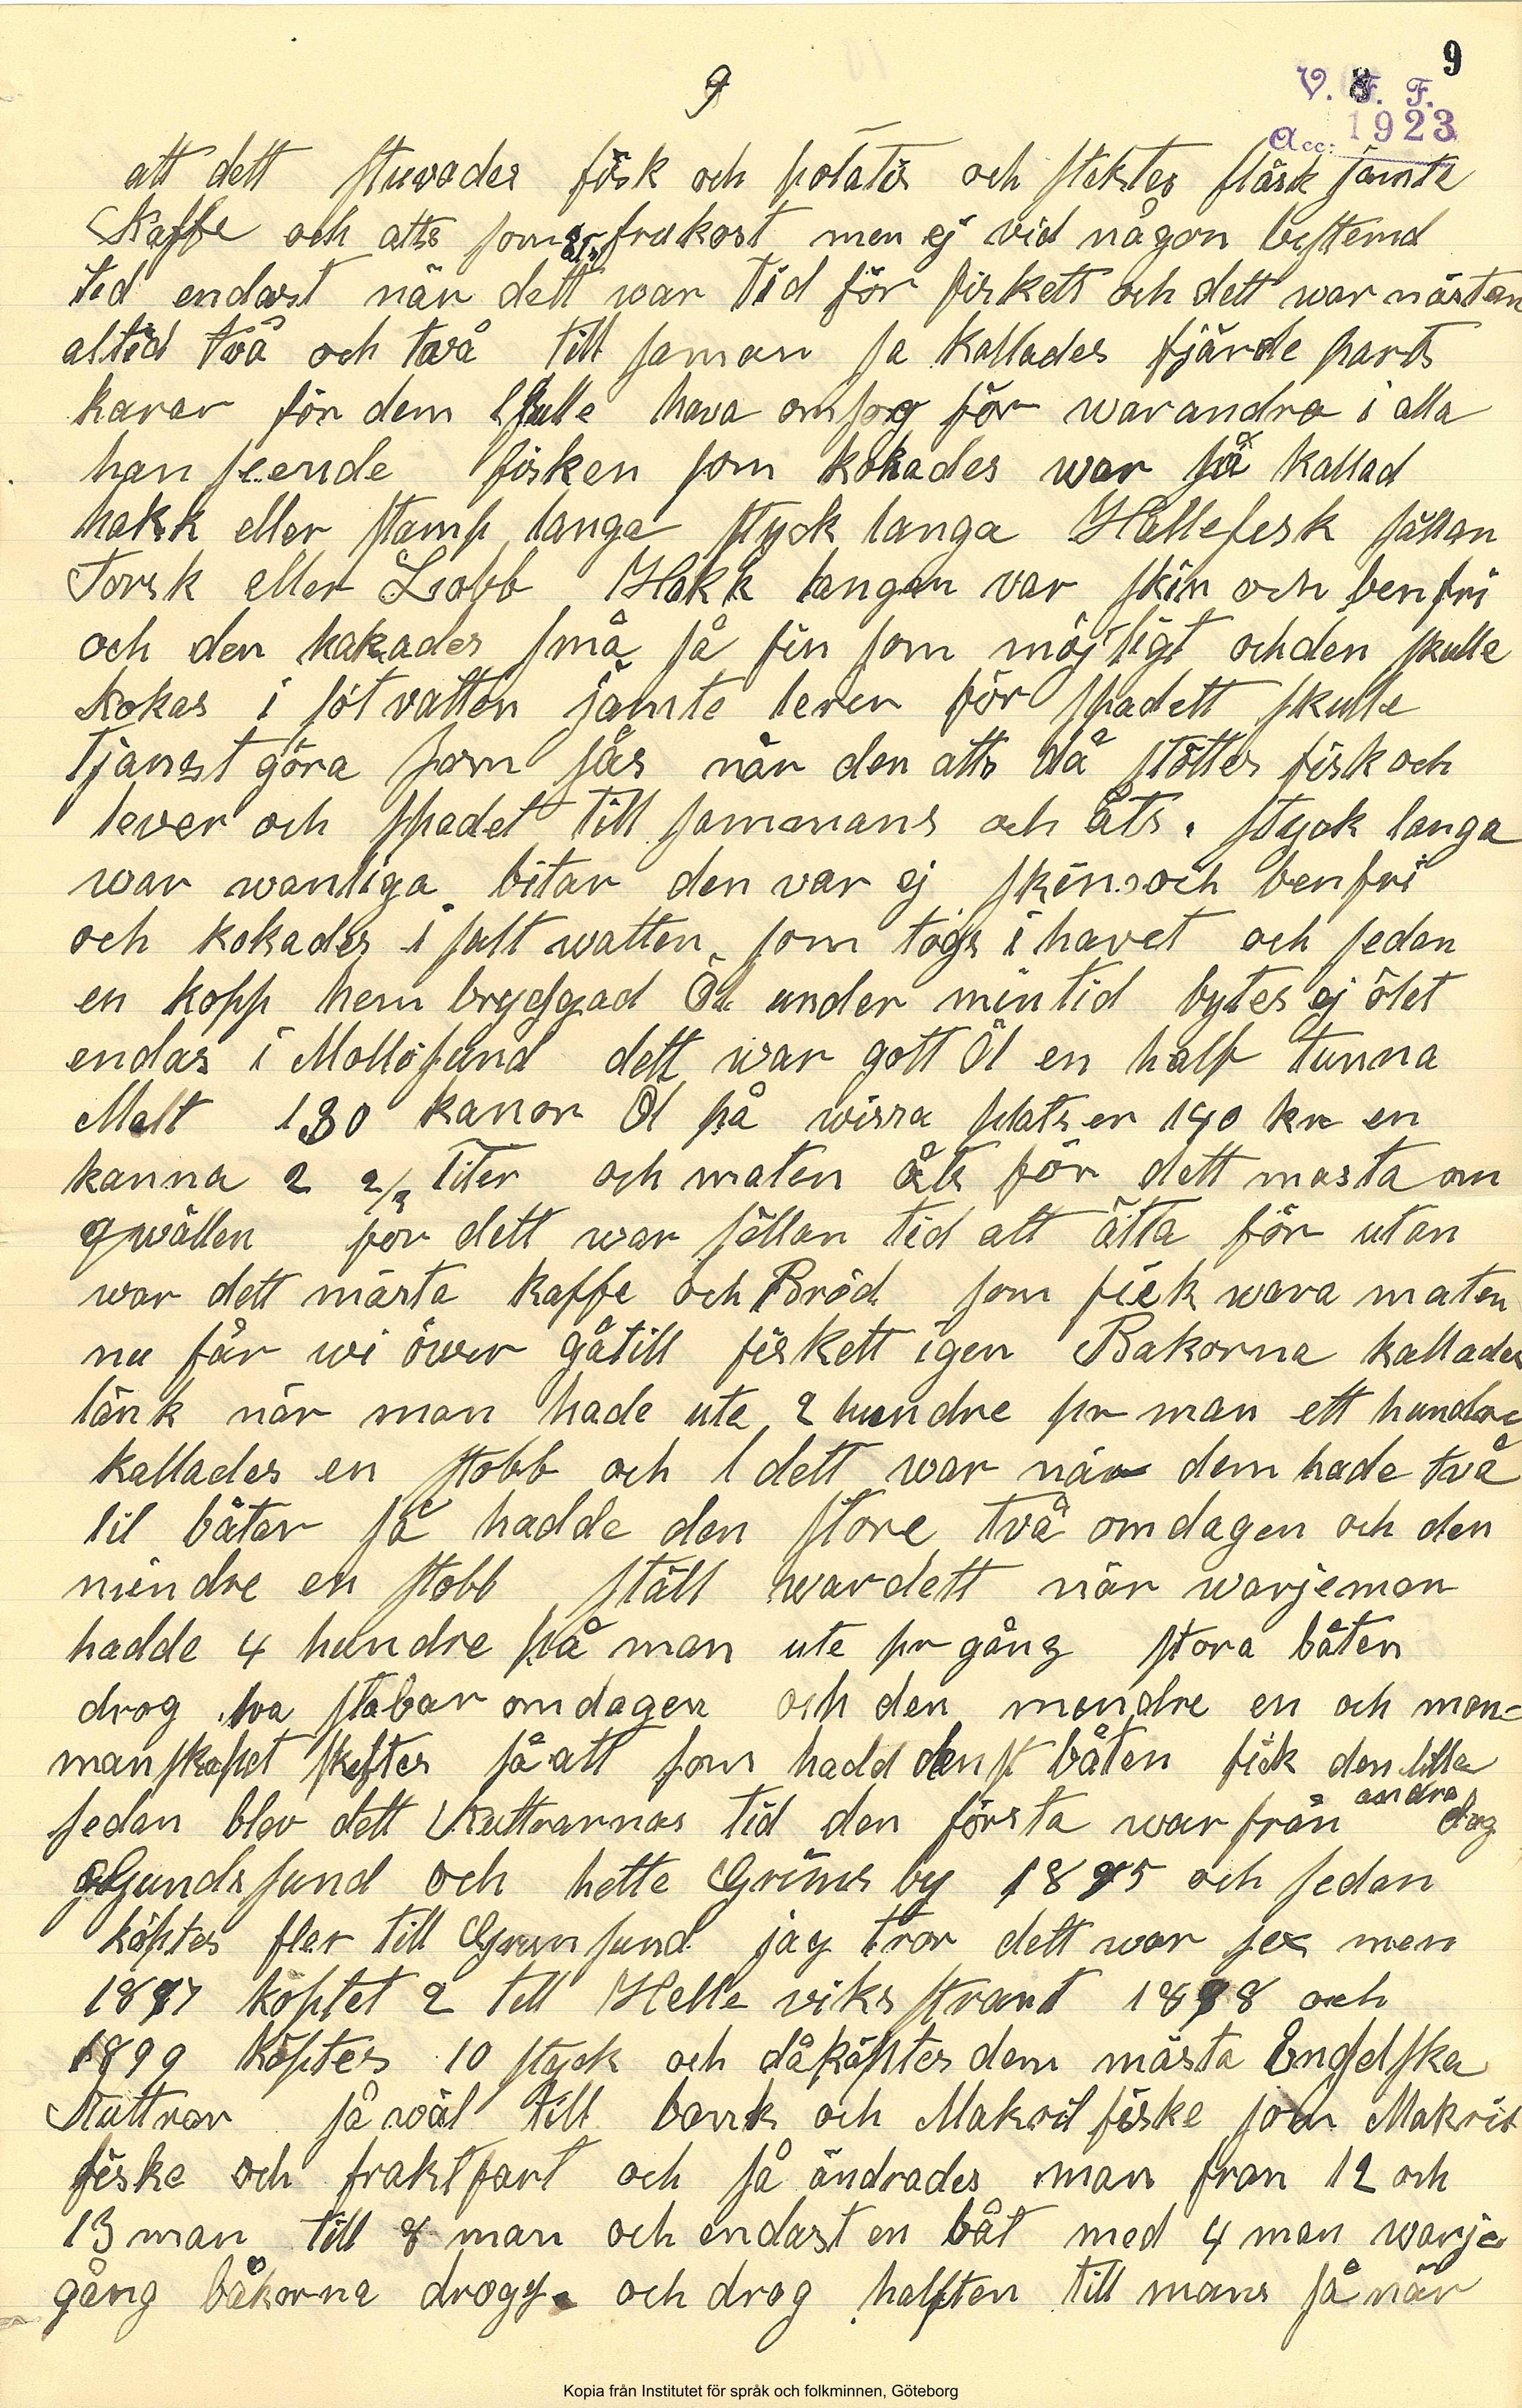 9
9
V. F. F.
Acc. 1923
att dett stuvades fisk och potatis och stektes fläsk jämte
Kaffe och atts som frukost men ej vid någon bestemd
tid endast när dett war tid för fiskett och dett war nästan
altid två och två till saman sa kallades fjärde parts
karar för dem skulle hava omsorg för warandra i alla
han seende fisken som kokades war så kallad
hakk eller stamp langa styck langa Hellefesk sällan
Torsk eller Lobb Hakk langan var skin och benfri
och den hakades små så fin som möjligt och den skulle
kokas i söt vatten jämte lever för spadett skulle
tjanst göra som sås når den atts då stöttes fisk och
lever och spadet till sammans och åts. styck langa
war wanliga bitar den var ej skin och benfri
och kokades i salt watten som togs i havet och sedan
en kopp hem bryggad Öl under min tid bytes ej ölet
endas i Mollösund dett war gott Öl en half tunna
Malt 130 kanor Öl på wissa platser 140 kr en
kanna 2 2/2 liter och maten åts för dett masta om
qwällen för dett war sällan tid att ätta för utan
war dett mästa kaffe och Bröd som fick wara maten
nu får wi över gåtill fiskett igen Bakorna kallades
länk när man hade ute 2 hundre pr man ett hundre
kallades en stobb och dett war när dem hade två
lil båtar så hadde den store två om dagen och den
mindre en stobb ställ war dett när warjeman
hadde 4 hundre på man ute pr gång stora båten
drog twa stabar om dagen och den mendre en och man=
manskapet skeftes så att som hadd den st båten fick den lilla
andra
sedan blev dett Kuttrarnas tid den första war från dag
Gundsund och hette Grimsby 1895 och sedan
köptes fler till Grunsund jag tror dett war sex men
1897 köptet 2 till Helle viksstrant 1898 och
1899 köptes 10 styck och då köptes dem mästa Engelska
Kuttrar så wäl till bank och Makril fiske som Makril
fiske och fraktfart och så ändrades man fran 12 och
13 man till 8 man och endast en båt med 4 man warje
gång båkorna drogs och drog halften till mans så när
Kopia från Institutet för språk och folkminnen, Göteborg